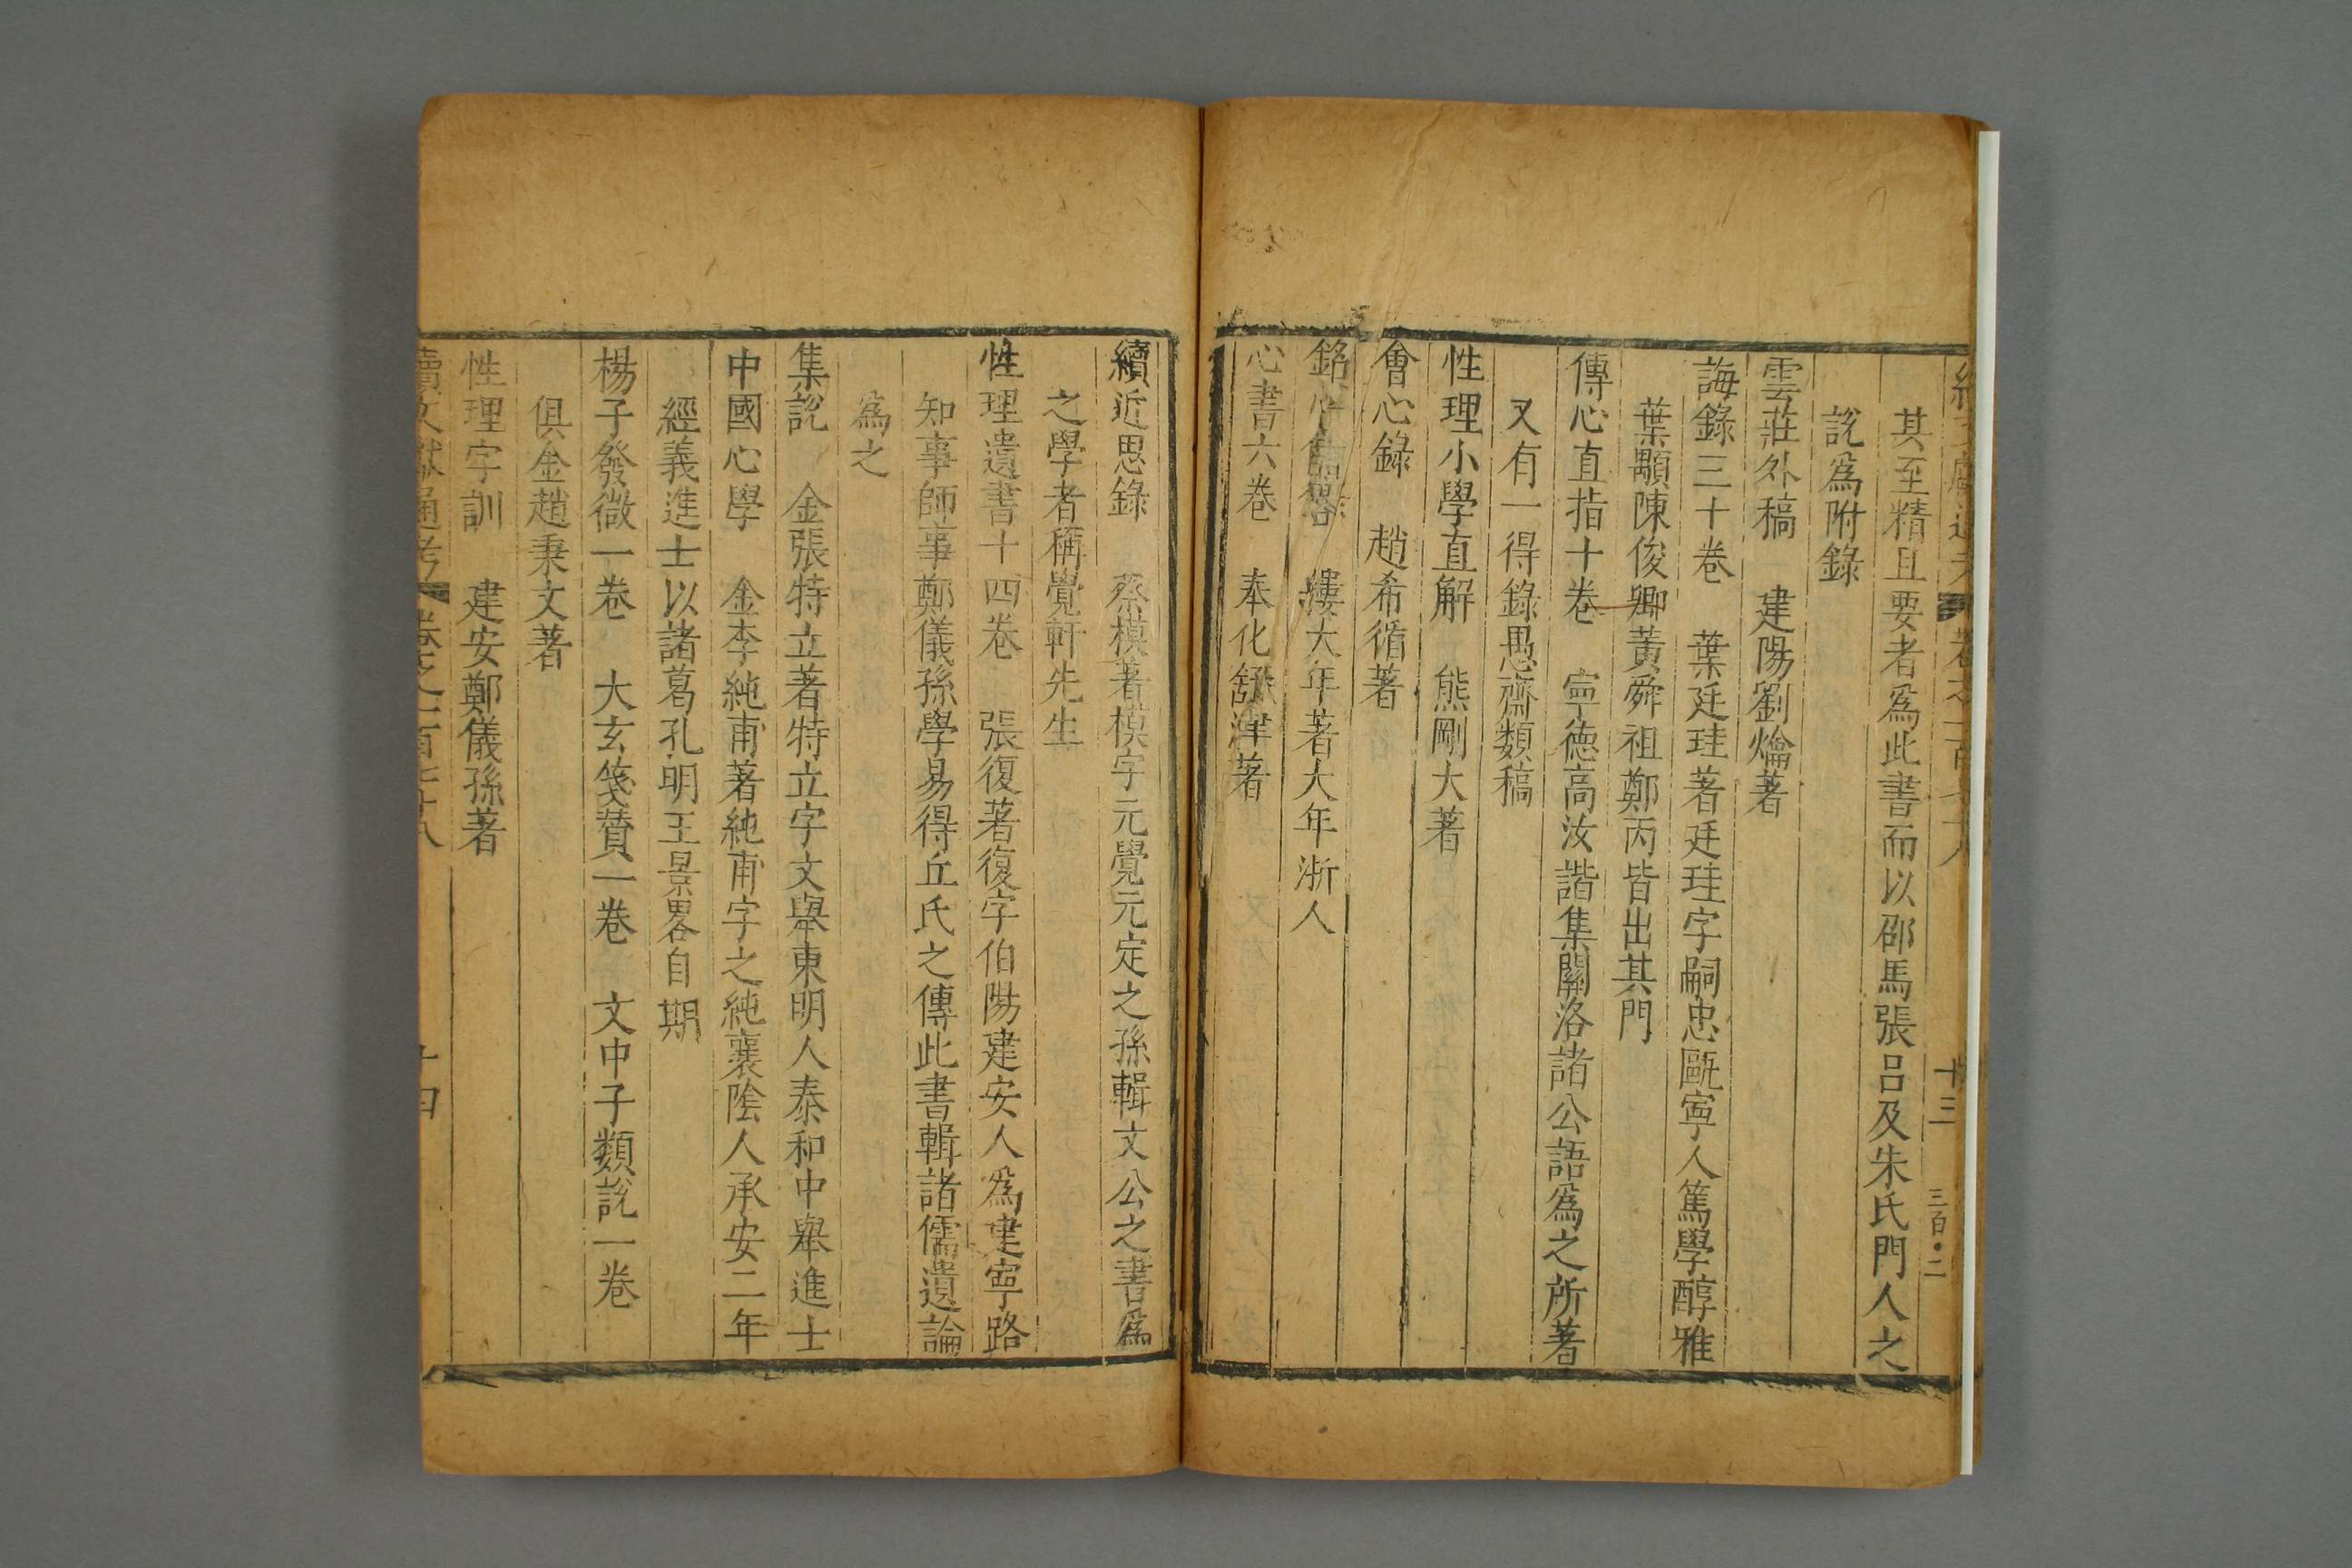 其至精且要者爲此書而以邵馬張呂及朱氏門人之
說爲附錄
雲莊外稿　建陽劉爚著
誨錄三十卷　葉廷珪著廷珪字嗣忠甌寧人篤學醇雅
葉顒陳俊卿黃舜祖鄭丙皆出其門
傳心直指十卷　寧德高汝諧集關洛諸公語爲之所著
又有一得錄愚齋類稿
性理小學直解　熊剛大著
會心錄　趙希循著
銘心　大年著大年浙人
心書六卷　奉化舒津著
十三
三百〇二
續近思錄　蔡模著模字元覺元定之孫輯文公之書爲
之學者稱覺軒先生
性理遺書十四卷　張復著復字伯陽建安人爲建寧路
知事師事鄭儀孫學易得丘氏之傳此書輯諸儒遺論
爲之
集說　金張特立著特立字文舉東明人泰和中舉進士
中國心學　金李純甫著純甫字之純襄陰人承安二年
經義進士以諸葛孔明王景畧自期
楊子發微一卷　大玄箋贊一卷　文中子類說一卷
俱金趙秉文著
性理字訓　建安鄭儀孫著
續文獻通考　卷之一百七十八
十四